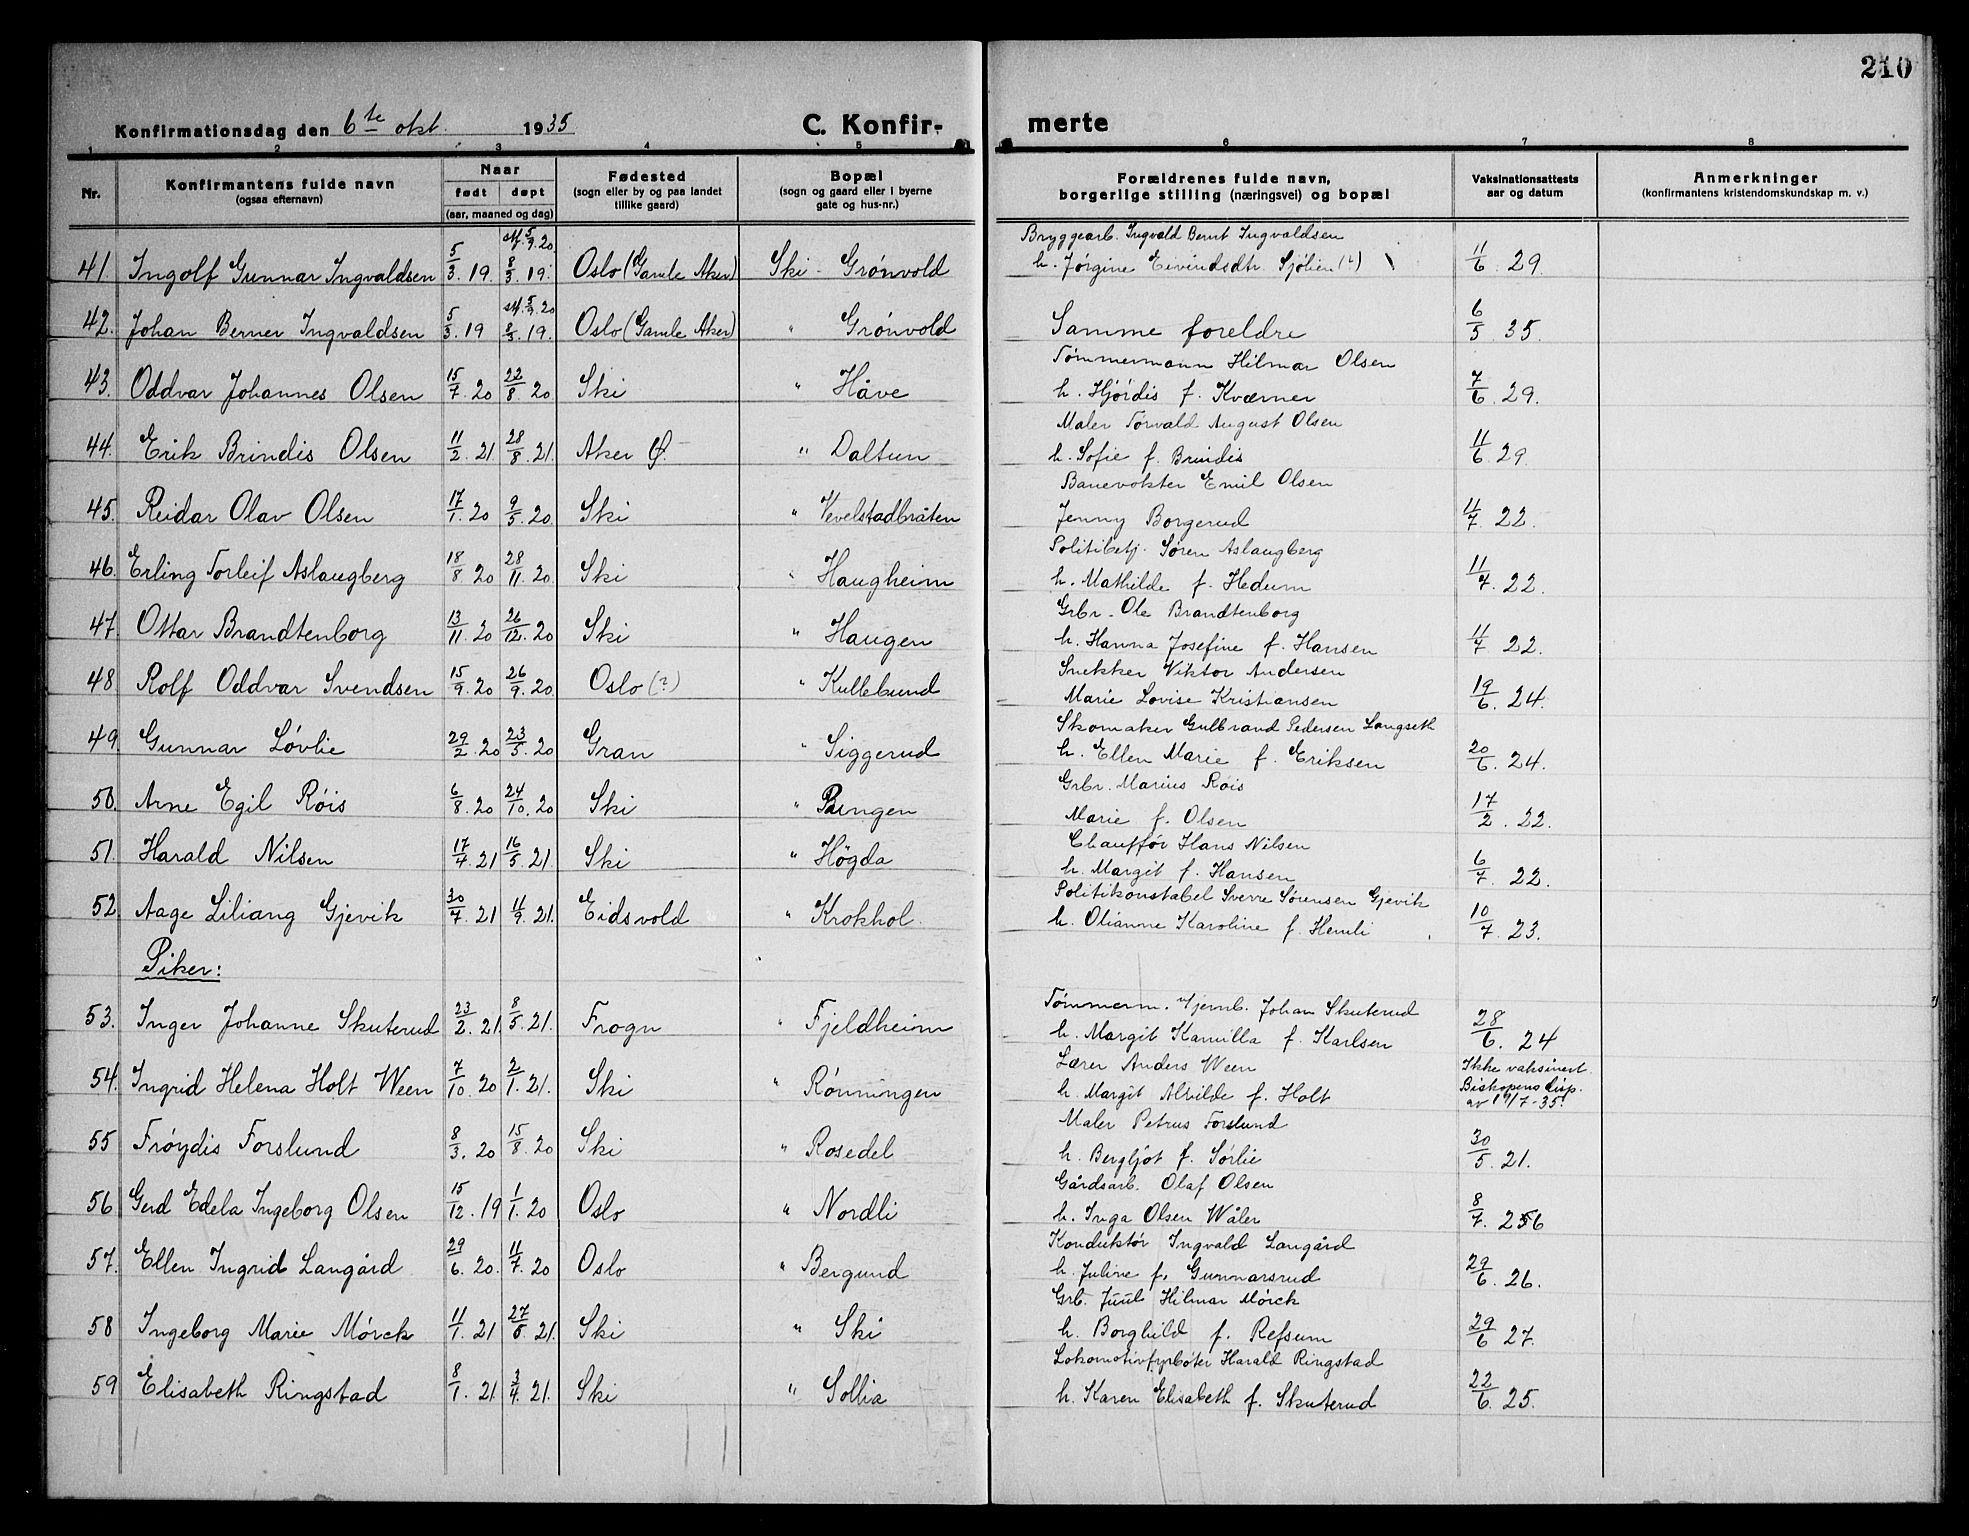 210
Konfirmationsdag den 6te okt. 1935 C. Konfir- merte
1 2 3 4 5 6 7 8
Nr. Konfirmantens fulde navn (ogsaa efternavn) Naar født døpt (aar, maaned og dag) Fødested (sogn eller by og paa landet tillike gaard) Bopæl (sogn og gaard eller i byerne gate og hus-nr.) Forældrenes fulde navn, borgerlige stilling (næringsvei) og bopæl Vaksinationsattests aar og datum Anmerkninger (konfirmantens kristendomskundskap m. v.)
Bryggearb. Ingvald Bernt Ingvaldsen
41. Ingolf Gunnar Ingvaldsen 5/3. 19. 8/3 19. Oslo (Gamle Aker) Ski - Grønvold h. Jørgine Eivindsdtr. Sjølien 11/6. 29.
42. Johan Berner Ingvaldsen 5/3. 19 8/3. 19. Oslo (Gamle Aker) " Grønvold Samme foreldre 6/5. 35.
Tømmermann Hilmar Olsen
43. Oddvar Johannes Olsen 15/7. 20 22/8. 20 Ski " Håve h. Hjørdis f. Kværner 7/6. 29.
Maler Torvald August Olsen
44. Erik Brindis Olsen 11/2. 21. 28/8. 21. Aker Ø. " Daltun h. Sofie f. Brindis 11/6 29.
Banevokter Emil Olsen
45. Reidar Olav Olsen 17/1. 20 9/5. 20. Ski " Vevelstadbråten Jenny Borgerud 11/7. 22.
Politibetj. Søren Aslaugberg
46. Erling Torleif Aslaugberg 18/8. 20 28/11. 20. Ski " Haugheim h. Mathilde f. Hedum 11/7. 22.
Grbr. Ole Brandtenborg
47. Ottar Brandtenborg 13/11. 20 26/12. 20 Ski " Haugen h. Hanna Josefine f. Hansen 11/7 22.
Snekker Viktor Andersen
48. Rolf Oddvar Svendsen 15/9. 20 26/9. 20 Oslo (?) " Kullebund Marie Lovise Kristiansen 19/6. 24.
Skomaker Gulbrand Pedersen Langseth
49. Gunnar Løvlie 29/2. 20 23/5. 20 Gran " Siggerud h. Ellen Marie f. Eriksen 20/6. 24.
Grbr. Marius Røis
50. Arne Egil Røis 6/8. 20 24/10. 20 Ski " Bingen Marie f. Olsen 17/2. 22.
Chauffør Hans Nilsen
51. Harald Nilsen 17/4. 21 16/5. 21 Ski " Högda h. Margit f. Hansen 6/7. 22.
Politikonstabel Sverre Sørensen Gjevik
52. Aage Liliang Gjevik 30/7. 21 11/9. 21. Eidsvold " Krokhol. h. Olianne Karoline f. Hemli 10/7. 23.
Piker:
Tømmerm. Hjemb. Johan Skuterud
53. Inger Johanne Skuterud 23/2. 21. 8/5. 21. Frogn " Fjeldheim h. Margit Kamilla f. Karlsen 28/6. 24
Lærer Anders Ween Ikke vaksinert.
54. Ingrid Helena Holt Ween 7/10. 20 2/1. 21. Ski " Rønningen h. Margit Alvilde f. Holt Biskopens disp. av 19/7-35.
Maler Petrus Forslund
55 Frøydis Forslund 8/3. 20 15/8. 20 Ski " Rosedel h. Bergljot f. Sørlie 30/5. 21.
Gårdsarb. Olaf Olsen
56 Gerd Edela Ingeborg Olsen 15/12. 19 1/1. 20 Oslo " Nordli h. Inga Olsen Wåler 8/7. 26
Konduktør Ingvald Langård
57. Ellen Ingrid Langård 29/6. 20. 11/7. 20 Oslo " Bergund h. Juline f. Gunnarsrud 29/6. 26.
Grb. Juul Hilmar Mørck
58 Ingeborg Marie Mørck 11/1. 21 27/5. 21. Ski " Ski h. Borghild f. Refsum 29/6 27.
Lokomotivfyrbøter Harald Ringstad
59 Elisabeth Ringstad 8/1. 21 3/4. 21. Ski " Sollia h. Karen Elisabeth f. Skuterud 22/6. 25.